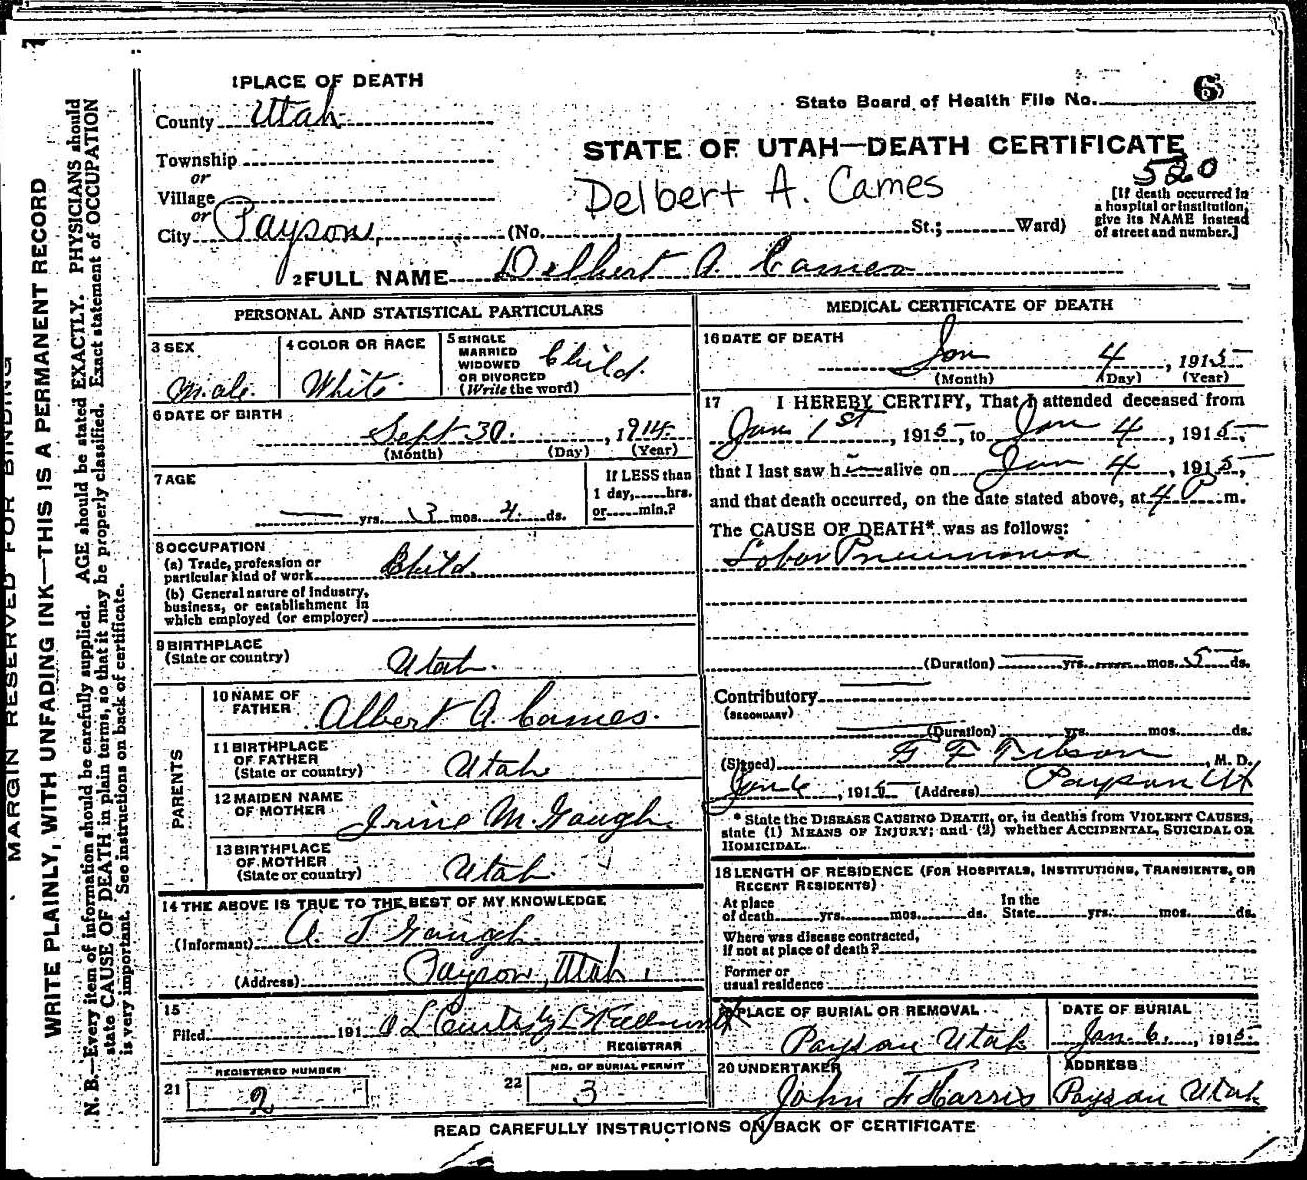 1 PLACE OF DEATH
County Utah
Township
or
Village
or
City Payson, (No. St.; Ward)
State Board of Health File No. 6
STATE OF UTAH—DEATH CERTIFICATE
520
Delbert A. Cames
[If death occurred in
a hospital or institution,
give its NAME instead
of street and number.]
2 FULL NAME Delbert A. Cames
PERSONAL AND STATISTICAL PARTICULARS
3 SEX
Male.
4 COLOR OR RACE
White.
5 SINGLE
MARRIED
WIDOWED
OR DIVORCED
(Write the word)
Child.
6 DATE OF BIRTH
Sept 30. , 1914.
(Month) (Day) (Year)
7 AGE
— yrs. 3 mos. 4. ds.
If LESS than
1 day, hrs.
or min.?
8 OCCUPATION
(a) Trade, profession or
particular kind of work Child.
(b) General nature of industry,
business, or establishment in
which employed (or employer)
9 BIRTHPLACE
(State or country) Utah.
PARENTS
10 NAME OF
FATHER Albert A. Cames.
11 BIRTHPLACE
OF FATHER
(State or country) Utah
12 MAIDEN NAME
OF MOTHER Irine M. Gaugh.
13 BIRTHPLACE
OF MOTHER
(State or country) Utah.
14 THE ABOVE IS TRUE TO THE BEST OF MY KNOWLEDGE
(Informant) A. J Gaugh.
(Address) Payson, Utah.
15
Filed 191 O L Curtis by
REGISTRAR
REGISTERED NUMBER
21 2
NO. OF BURIAL PERMIT
22 3
MEDICAL CERTIFICATE OF DEATH
16 DATE OF DEATH
Jan 4 , 1915
(Month) (Day) (Year)
17 I HEREBY CERTIFY, That I attended deceased from
Jan 1st , 1915, to Jan 4 , 1915,
that I last saw him alive on Jan 4 , 1915,
and that death occurred, on the date stated above, at 4 P m.
The CAUSE OF DEATH* was as follows:
Lobar Pneumonia
(Duration) yrs. mos. 5 ds.
Contributory
(SECONDARY)
(Duration) yrs. mos. ds.
(Signed) , M. D.
Jan 6 , 1915 (Address) Payson Ut
* State the DISEASE CAUSING DEATH, or, in deaths from VIOLENT CAUSES,
state (1) MEANS OF INJURY; and (2) whether ACCIDENTAL, SUICIDAL OR
HOMICIDAL.
18 LENGTH OF RESIDENCE (FOR HOSPITALS, INSTITUTIONS, TRANSIENTS, OR
RECENT RESIDENTS)
At place
of death yrs. mos. ds.
In the
State yrs. mos. ds.
Where was disease contracted,
if not at place of death?
Former or
usual residence
19 PLACE OF BURIAL OR REMOVAL
Payson Utah
DATE OF BURIAL
Jan. 6. , 1915.
20 UNDERTAKER
John F Harris
ADDRESS
Payson Utah
READ CAREFULLY INSTRUCTIONS ON BACK OF CERTIFICATE
MARGIN RESERVED FOR BINDING
WRITE PLAINLY, WITH UNFADING INK—THIS IS A PERMANENT RECORD
N. B.—Every item of information should be carefully supplied. AGE should be stated EXACTLY. PHYSICIANS should
state CAUSE OF DEATH in plain terms, so that it may be properly classified. Exact statement of OCCUPATION
is very important. See instructions on back of certificate.